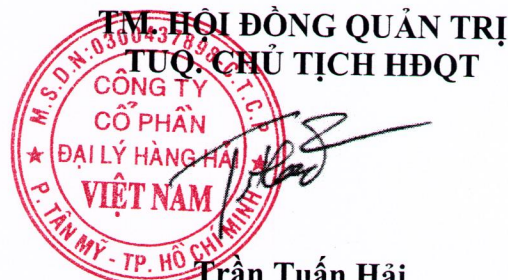 TM. HỘI ĐỒNG QUẢN TRỊ
TUQ. CHỦ TỊCH HĐQT
M.S.D.N: 0300437898 C.T.C.P
CÔNG TY
CỔ PHẦN
ĐẠI LÝ HÀNG HẢI
VIỆT NAM
P. TÂN MỸ - TP. HỒ CHÍ MINH
Trần Tuấn Hải